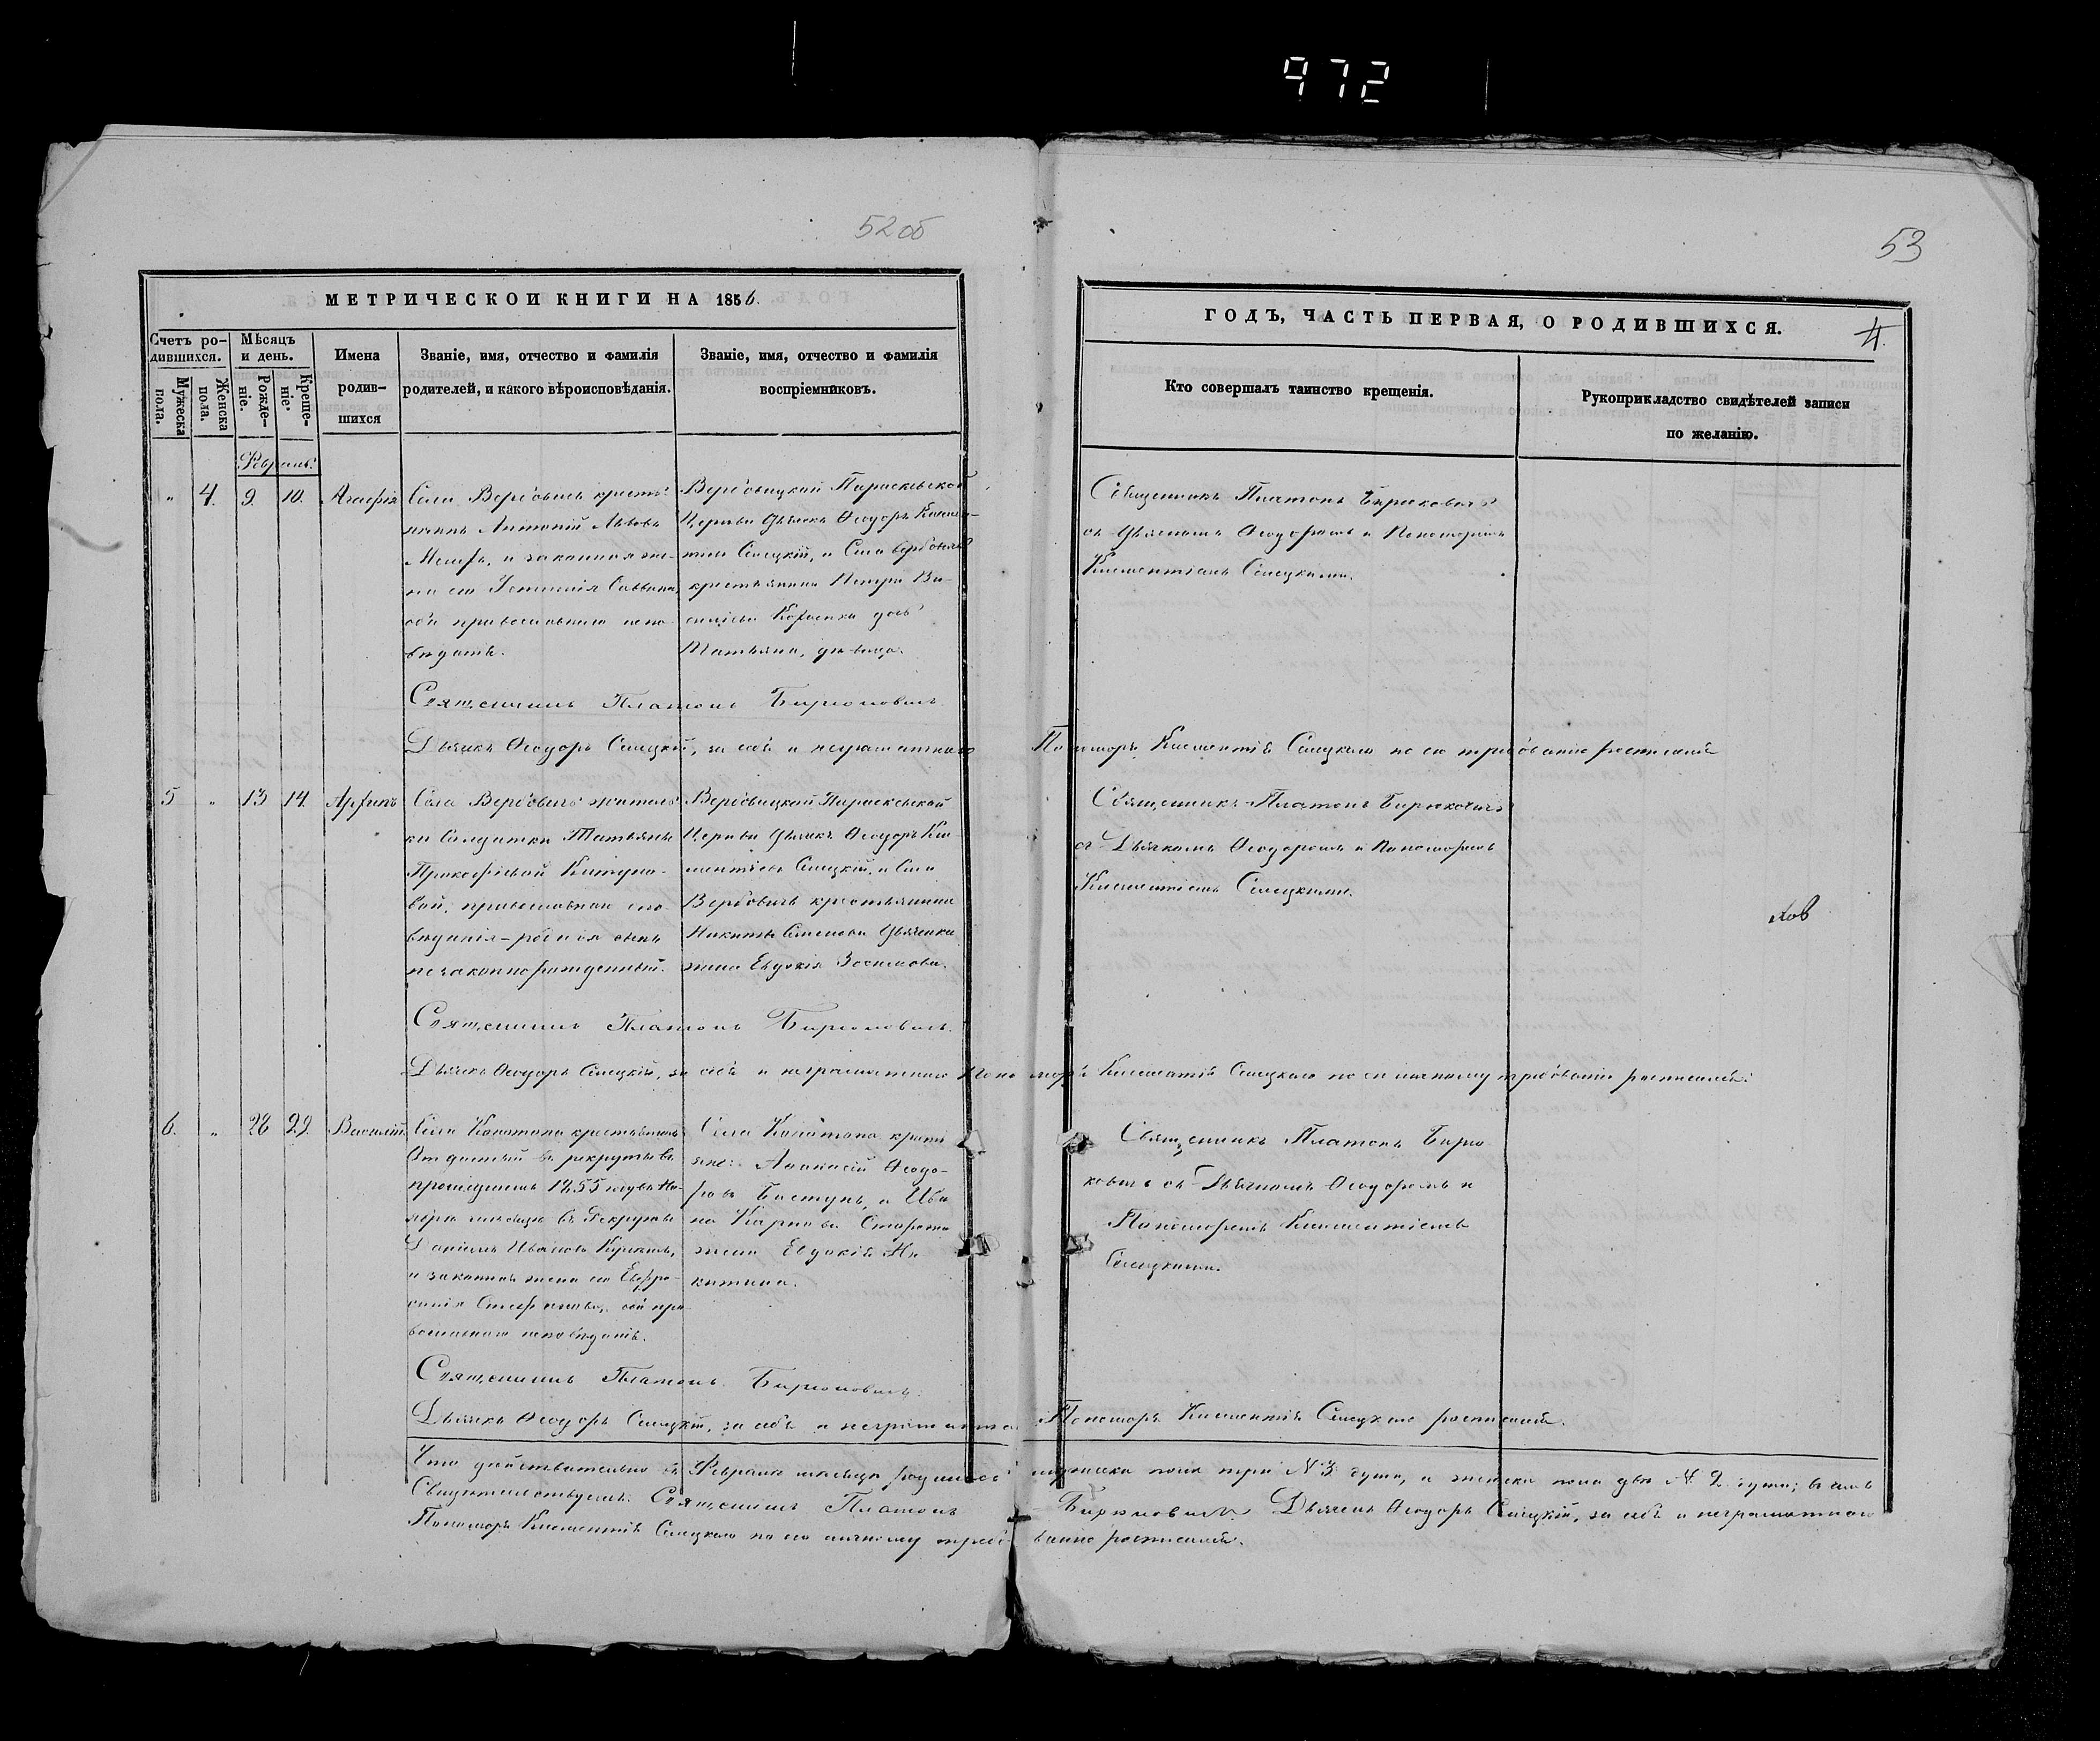 972
52 об
53
МЕТРИЧЕСКОЙ КНИГИ НА 1856.
Счетъ родившихся.
Мужеска пола.
Женска пола.
Мѣсяцъ и день.
Рожденіе.
Крещеніе.
Имена родившихся
Званіе, имя, отчество и фамилія
родителей, и какого вѣроисповѣданія.
Званіе, имя, отчество и фамилія
воспріемниковъ.
ГОДЪ, ЧАСТЬ ПЕРВАЯ, О РОДИВШИХСЯ.
4.
Кто совершалъ таинство крещенія.
Рукоприкладство свидѣтелей записи
по желанію.
Февраль.
" 4. 9. 10. Агафія
Села Вербовичъ кресть-
янинъ Антоній Львовъ
и законная же-
на его Саввина,
оба православнаго испо-
вѣданія.
Вербовицкой Параскевской
Церкви Дьячекъ Ѳеодоръ Климен-
тіевъ Сѣлецкій, и Села Вербовичъ
крестьянина Петра Ва-
силіева дочь
Татьяна, дѣвица.
Священникъ Платонъ Бирюковичъ
съ Дьячкомъ Ѳеодоромъ и Пономаремъ
Климентіемъ Сѣлецкими.
Священникъ Платонъ Бирюковичъ
Дьячекъ Ѳеодоръ Сѣлецкій, за себѣ и неграматнаго Пономаря Климентія Сѣлецкаго по его требованію росписался
5 " 13 14.
Села Вербовичъ житель-
ки Солдатки Татьяны
Прокофіевой
вой, православнаго испо-
вѣданія - сынъ
незаконнорожденный.
Вербовицкой Параскевской
Церкви Дьячекъ Ѳеодоръ Кли-
ментіевъ Сѣлецкій, и Села
Вербовичъ крестьянина
Никиты Дьяченка
жена Евдокія Зосимова.
Священникъ Платонъ Бирюковичъ
съ Дьячкомъ Ѳеодоромъ и Пономаремъ
Климентіемъ Сѣлецкими.
Священникъ Платонъ Бирюковичъ.
Дьячекъ Ѳеодоръ Сѣлецкій, за себѣ и неграматнаго Пономаря Климентія Сѣлецкаго по его личному требованію росписался.
6. " 28 29. Василій
Села крестьянинъ
Отданный въ рекруты въ
прошедшемъ 1855 году въ
мѣсяцѣ въ Рекруты
Даніилъ Ивановъ
и законная жена его Евфро-
синія Стефанова, оба пра-
вославнаго исповѣданія.
Села кресть-
яне: Аѳанасій Ѳеодо-
ровъ и Ива-
на Карпова
жена Евдокія Ни-
китина.
Священникъ Платонъ Бирю-
ковичъ съ Дьячкомъ Ѳеодоромъ и
Пономаремъ Климентіемъ
Сѣлецкими.
Священникъ Платонъ Бирюковичъ.
Дьячекъ Ѳеодоръ Сѣлецкій, за себѣ и неграматнаго Пономаря Климентія Сѣлецкаго росписался.
Что дѣйствительно въ Февралѣ мѣсяцѣ родилось мужеска пола три № 3 души, и женска пола двѣ № 2 души; въ томъ
Свидѣтельствуемъ: Священникъ Платонъ Бирюковичъ Дьячекъ Ѳеодоръ Сѣлецкій, за себѣ и неграматнаго
Пономаря Климентія Сѣлецкаго по его личному требованію росписался.